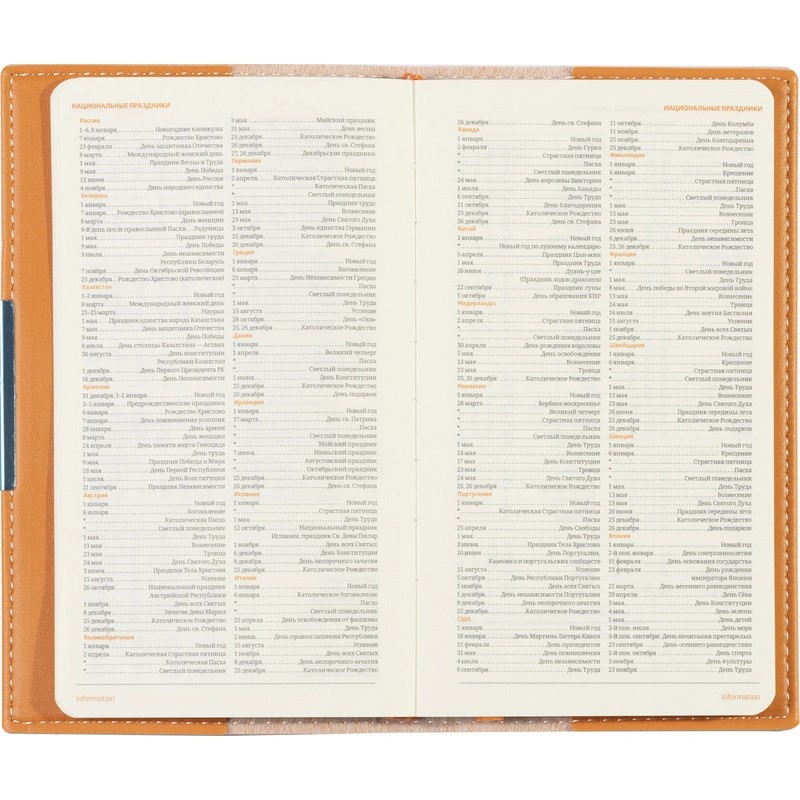 НАЦИОНАЛЬНЫЕ ПРАЗДНИКИ
Россия
1–6, 8 января Новогодние каникулы
7 января Рождество Христово
23 февраля День защитника Отечества
8 марта Международный женский день
1 мая Праздник Весны и Труда
9 мая День Победы
12 июня День России
4 ноября День народного единства
Беларусь
1 января Новый год
7 января Рождество Христово (православное)
8 марта День женщин
9-й день после православной Пасхи Радуница
1 мая Праздник труда
9 мая День Победы
3 июля День независимости
Республики Беларусь
7 ноября День Октябрьской Революции
25 декабря Рождество Христово (католическое)
Казахстан
1–2 января Новый год
8 марта Международный женский день
21–23 марта Наурыз
1 мая Праздник единства народа Казахстана
7 мая День защитника Отечества
9 мая День Победы
6 июля День столицы Казахстана — Астана
30 августа День конституции
Республики Казахстан
1 декабря День Первого Президента РК
16 декабря День Независимости
Армения
31 декабря, 1–2 января Новый год
3–5 января Предрождественские праздники
6 января Рождество Христово
7 января День поминовения усопших
28 января День армии
8 марта День женщин
24 апреля День памяти жертв Геноцида
1 мая День труда
9 мая Праздник Победы и Мира
28 мая День Первой Республики
5 июля День Конституции
21 сентября Праздник Независимости
Австрия
1 января Новый год
6 января Богоявление
* Католическая Пасха
* Светлый понедельник
1 мая День Труда
13 мая Вознесение
23 мая Троица
24 мая День Святого Духа
3 июня Праздник Тела Христова
15 августа Успение
26 октября Национальный праздник
Австрийской Республики
1 ноября День всех Святых
8 декабря Зачатие Девы Марии
25 декабря Католическое Рождество
26 декабря День св. Стефана
Великобритания
1 января Новый год
2 апреля Католическая Страстная пятница
* Католическая Пасха
* Светлый понедельник
3 мая Майский праздник
31 мая День весны
25 декабря Католическое Рождество
26 декабря День св. Стефана
27, 28 декабря Декабрьские праздники
Германия
1 января Новый год
2 апреля Католическая Страстная пятница
* Католическая Пасха
* Светлый понедельник
1 мая Праздник труда
13 мая Вознесение
23 мая День Святого Духа
3 октября День единства Германии
25 декабря Католическое Рождество
26 декабря День св. Стефана
Греция
1 января Новый год
6 января Богоявление
25 марта День Независимости Греции
* Пасха
* Светлый понедельник
1 мая День Труда
15 августа Успение
28 октября День «Охи»
25, 26 декабря Католическое Рождество
Дания
1 января Новый год
1 апреля Великий четверг
* Пасха
* Светлый понедельник
5 июня День Конституции
25 декабря Католическое Рождество
26 декабря День подарков
Ирландия
1 января Новый год
17 марта День св. Патрика
* Пасха
* Светлый понедельник
* Майский праздник
7 июня Июньский праздник
* Августовский праздник
* Октябрьский праздник
25 декабря Католическое Рождество
26 декабря День св. Стефана
Испания
1 января Новый год
* Страстная пятница
1 мая День Труда
12 октября Национальный праздник
Испании, праздник Св. Девы Пилар
1 ноября День всех Святых
6 декабря День Конституции
8 декабря День непорочного зачатия
25 декабря Католическое Рождество
Италия
1 января Новый год
6 января Католическое богоявление
* Пасха
* Светлый понедельник
25 апреля День освобождения от фашизма
1 мая День Труда
2 июня День провозглашения Республики
15 августа Успение
1 ноября День всех Святых
8 декабря День непорочного зачатия
25 декабря Католическое Рождество
information
НАЦИОНАЛЬНЫЕ ПРАЗДНИКИ
26 декабря День св. Стефана
Канада
1 января Новый год
2 февраля День Сурка
* Страстная пятница
* Пасха
* Светлый понедельник
24 мая День королевы Виктории
1 июля День Канады
6 сентября День Труда
11 октября День благодарения
25 декабря Католическое Рождество
26 декабря День св. Стефана
Китай
1 января Новый год
* Новый год по лунному календарю
5 апреля Праздник Цин-мин
1 мая Праздник Труда
16 июня Дуань-у-цзе
(Праздник лодок драконов)
22 сентября Праздник луны
1 октября День образования КНР
Нидерланды
1 января Новый год
2 апреля Страстная пятница
* Пасха
* Светлый понедельник
30 апреля День рождения королевы
5 мая День освобождения
13 мая Вознесение
23 мая Троица
25, 26 декабря Католическое Рождество
Норвегия
1 января Новый год
28 марта Вербное воскресенье
* Великий четверг
* Страстная пятница
* Пасха
* Светлый понедельник
1 мая День Труда
13 мая Вознесение
17 мая День Конституции
23 мая Троица
24 мая День Святого Духа
25, 26 декабря Католическое Рождество
Португалия
1 января Новый год
* Католическая Страстная пятница
* Пасха
25 апреля День Свободы
1 мая День Труда
3 июня Праздник Тела Христова
10 июня День Португалии,
Камоэнса и португальских сообществ
15 августа Успение
5 октября День Республики Португалии
1 ноября День всех Святых
1 декабря День независимости Португалии
8 декабря День непорочного зачатия
25 декабря Католическое Рождество
США
1 января Новый год
18 января День Мартина Лютера Кинга
15 февраля День президентов
31 мая День поминовения
4 июля День независимости
6 сентября День Труда
11 октября День Колумба
11 ноября День ветеранов
25 ноября День благодарения
25 декабря Католическое Рождество
Финляндия
1 января Новый год
6 января Крещение
* Страстная пятница
* Пасха
* Светлый понедельник
1 мая День Труда
13 мая Вознесение
23 мая Троица
26 июня Праздник середины лета
6 декабря День независимости
25, 26 декабря Католическое Рождество
Франция
1 января Новый год
* Светлый понедельник
1 мая День Труда
8 мая День победы во Второй мировой войне
13 мая Вознесение
24 мая Троица
14 июля День взятия Бастилии
15 августа Успение
1 ноября День всех Святых
25 декабря Католическое Рождество
Швейцария
1 января Новый год
6 января Крещение
* Страстная пятница
* Светлый понедельник
1 мая День Труда
13 мая Вознесение
23 мая День Святого Духа
26 июня Праздник середины лета
25 декабря Католическое Рождество
26 декабря День подарков
Швеция
1 января Новый год
6 января Крещение
* Страстная пятница
* Пасха
* Светлый понедельник
1 мая День Труда
13 мая Вознесение
23 мая День Святого Духа
26 июня Праздник середины лета
25 декабря Католическое Рождество
26 декабря День подарков
Япония
1 января Новый год
2-й пон. января День совершеннолетия
11 февраля День основания государства
23 февраля День рождения
императора Японии
21 марта День весеннего равноденствия
29 апреля День Сёва
3 мая День Конституции
4 мая День зелени
5 мая День детей
3-й пон. июля День моря
3-й пон. сентября День почитания престарелых
23 сентября День осеннего равноденствия
2-й пон. октября День спорта
3 ноября День культуры
23 ноября День Труда
information